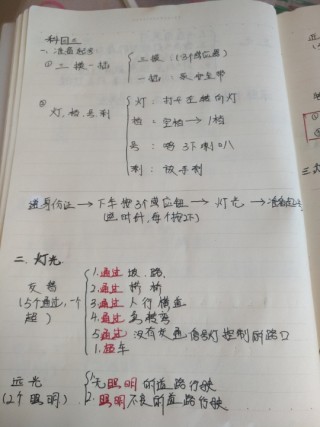 科目三
一、准备起步
① 三摸一插
三摸:(3个感应器)
一插:安全带
② 灯、档、号、刹
灯:打开左转向灯
档:空档→1档
号:鸣3下喇叭
刹:放手刹
进身份证→下车按3个感应钮→灯光→准备起步
(逆时针,每个按2下)
二、灯光
交替
(5个通过,一个超)
1.通过坡路.
2.通过拱桥
3.通过人行横道
4.通过急转弯
5.通过没有交通信号灯控制的路口
1.超车
远光
(2个照明)
1.无照明的道路行驶
2.照明不良的道路行驶